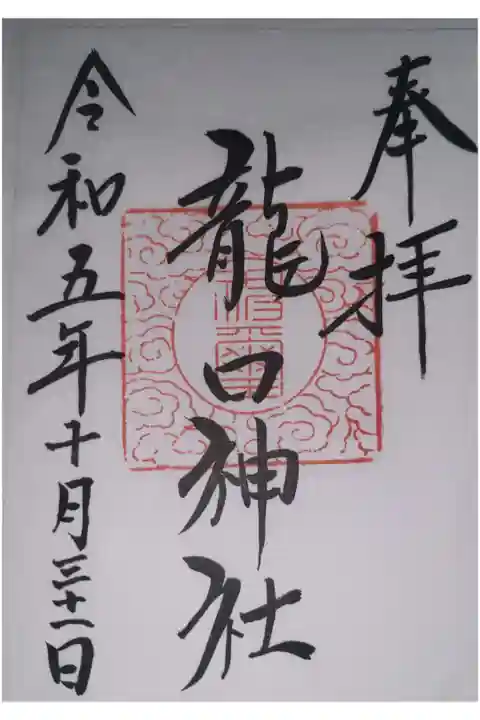 奉拝
龍口神社
令和五年十月三十一日